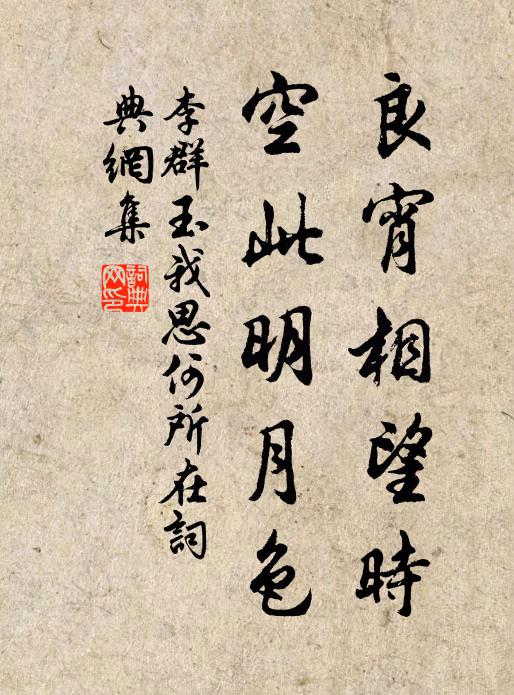 良宵相望時
空此明月色
李群玉我思何所在詞
典網集
詞典
网印